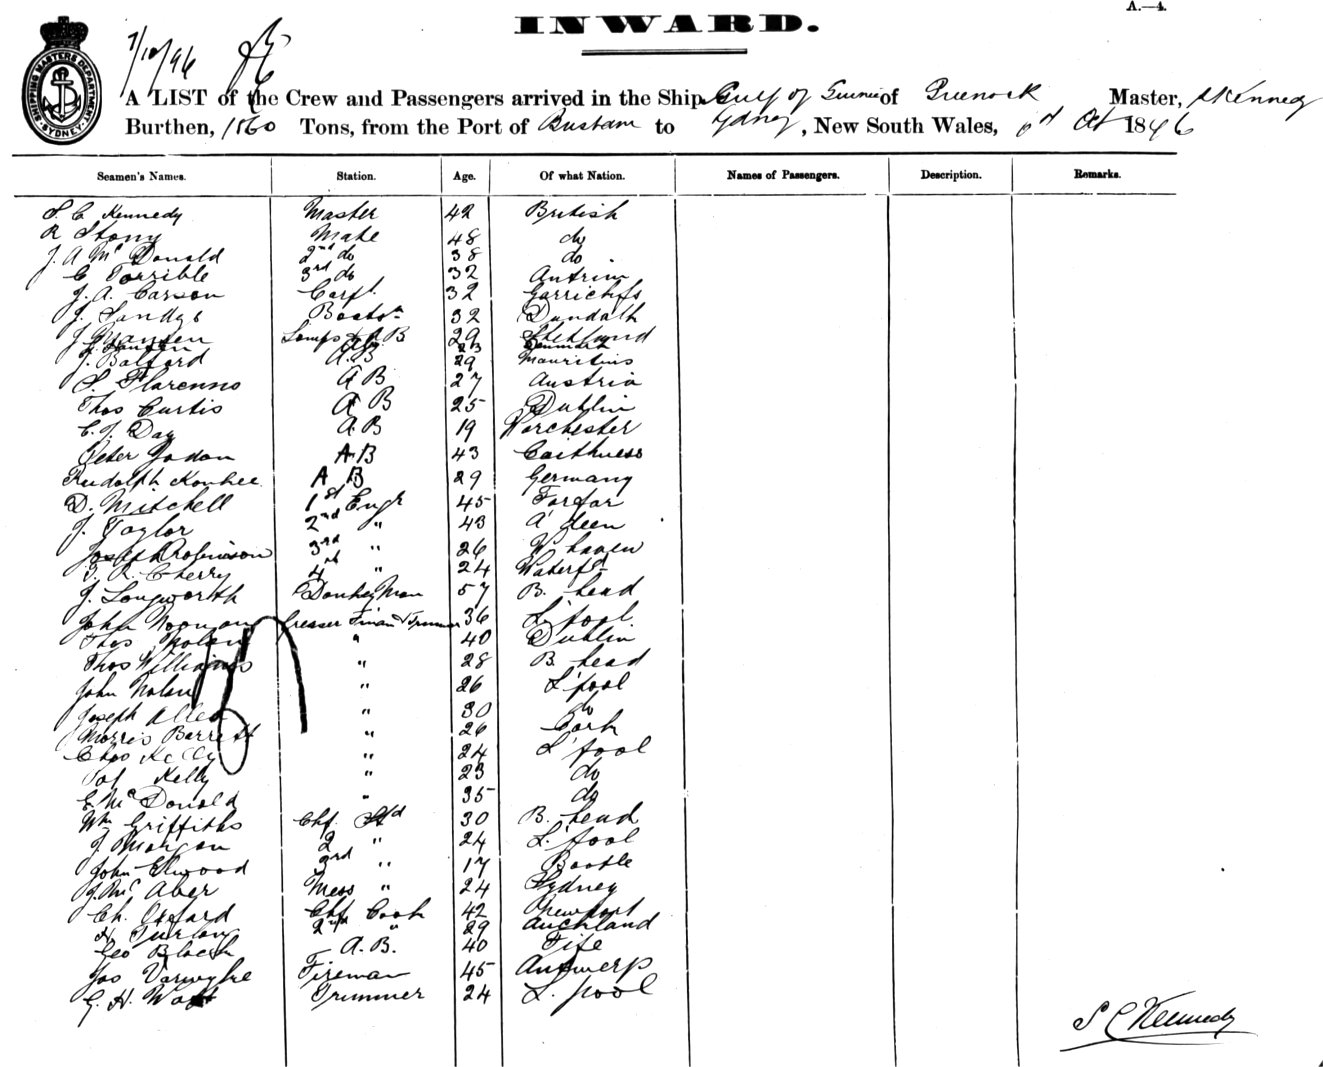 A.—4.
INWARD.
7/10/96
SHIPPING MASTERS DEPARTMENT SYDNEY
A LIST of the Crew and Passengers arrived in the Ship Gulf of of Greenock Master, Kennedy
Burthen, Tons, from the Port of to Sydney, New South Wales, Oct 1896
Seamen's Names. Station. Age. Of what Nation. Names of Passengers. Description. Remarks.
S. C. Kennedy Master 42 British
R Mate 48 do
J. A. Mc Donald 2nd do 38 do
C Torrible 3rd do 32 Antrim
J. A. Carson Carpt. 32
J. 32 Dundalk
J Lamps & A B 29 Shetland
J. Hansen AB 23 Denmark
J. Balford A.B 29 Mauritius
S. Florenno A B 27 Austria
Thos Curtis A B 25 Dublin
C. J. Day A.B 19 Worchester
Peter A.B 43 Caithness
Rudolph A B 29 Germany
D. Mitchell 1st Engr 45 Forfar
J. Taylor 2nd " 43 A'deen
Joseph Robinson 3rd " 26 W haven
J. R. Cherry 4th " 24 Waterfd
J. Longworth Donkey Man 57 B. head
John Noonan Greaser Fireman & Trimmer 36 L'pool.
Thos Nolan " 40 Dublin
Thos Williams " 28 B. head
John Nolan " 26 L'pool
Joseph Allen " 30 do
Morris Barrett " 26 Cork
Chas Kelly " 24 L'pool
Pat Kelly " 23 do
E. Mc Donald " 35 do
Wm Griffiths Chf. Std 30 B. head
J. Morgan 2 " 24 L.'pool
John Elwood 3rd " 17 Bootle
J. Mc Aber Mess " 24 Sydney
Ch. Oxford Chf Cook 42 Newport
H. Turlony 2nd " 29 Auckland
Geo Black A.B. 40 Fife
Jos Fireman 45 Antwerp
G. H. Trimmer 24 L. pool
S C Kennedy